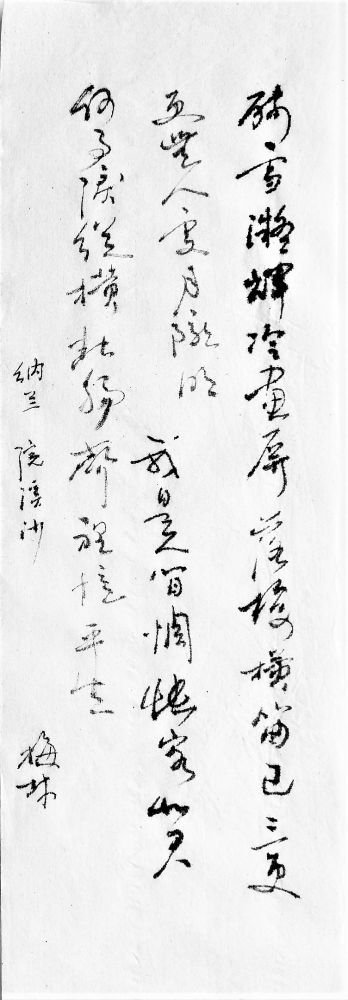 残雪凝辉冷画屏落梅横笛已三更
更无人处月胧明 我是人间惆怅客知君
何事泪纵横断肠声里忆平生
纳兰 浣溪沙
梅林